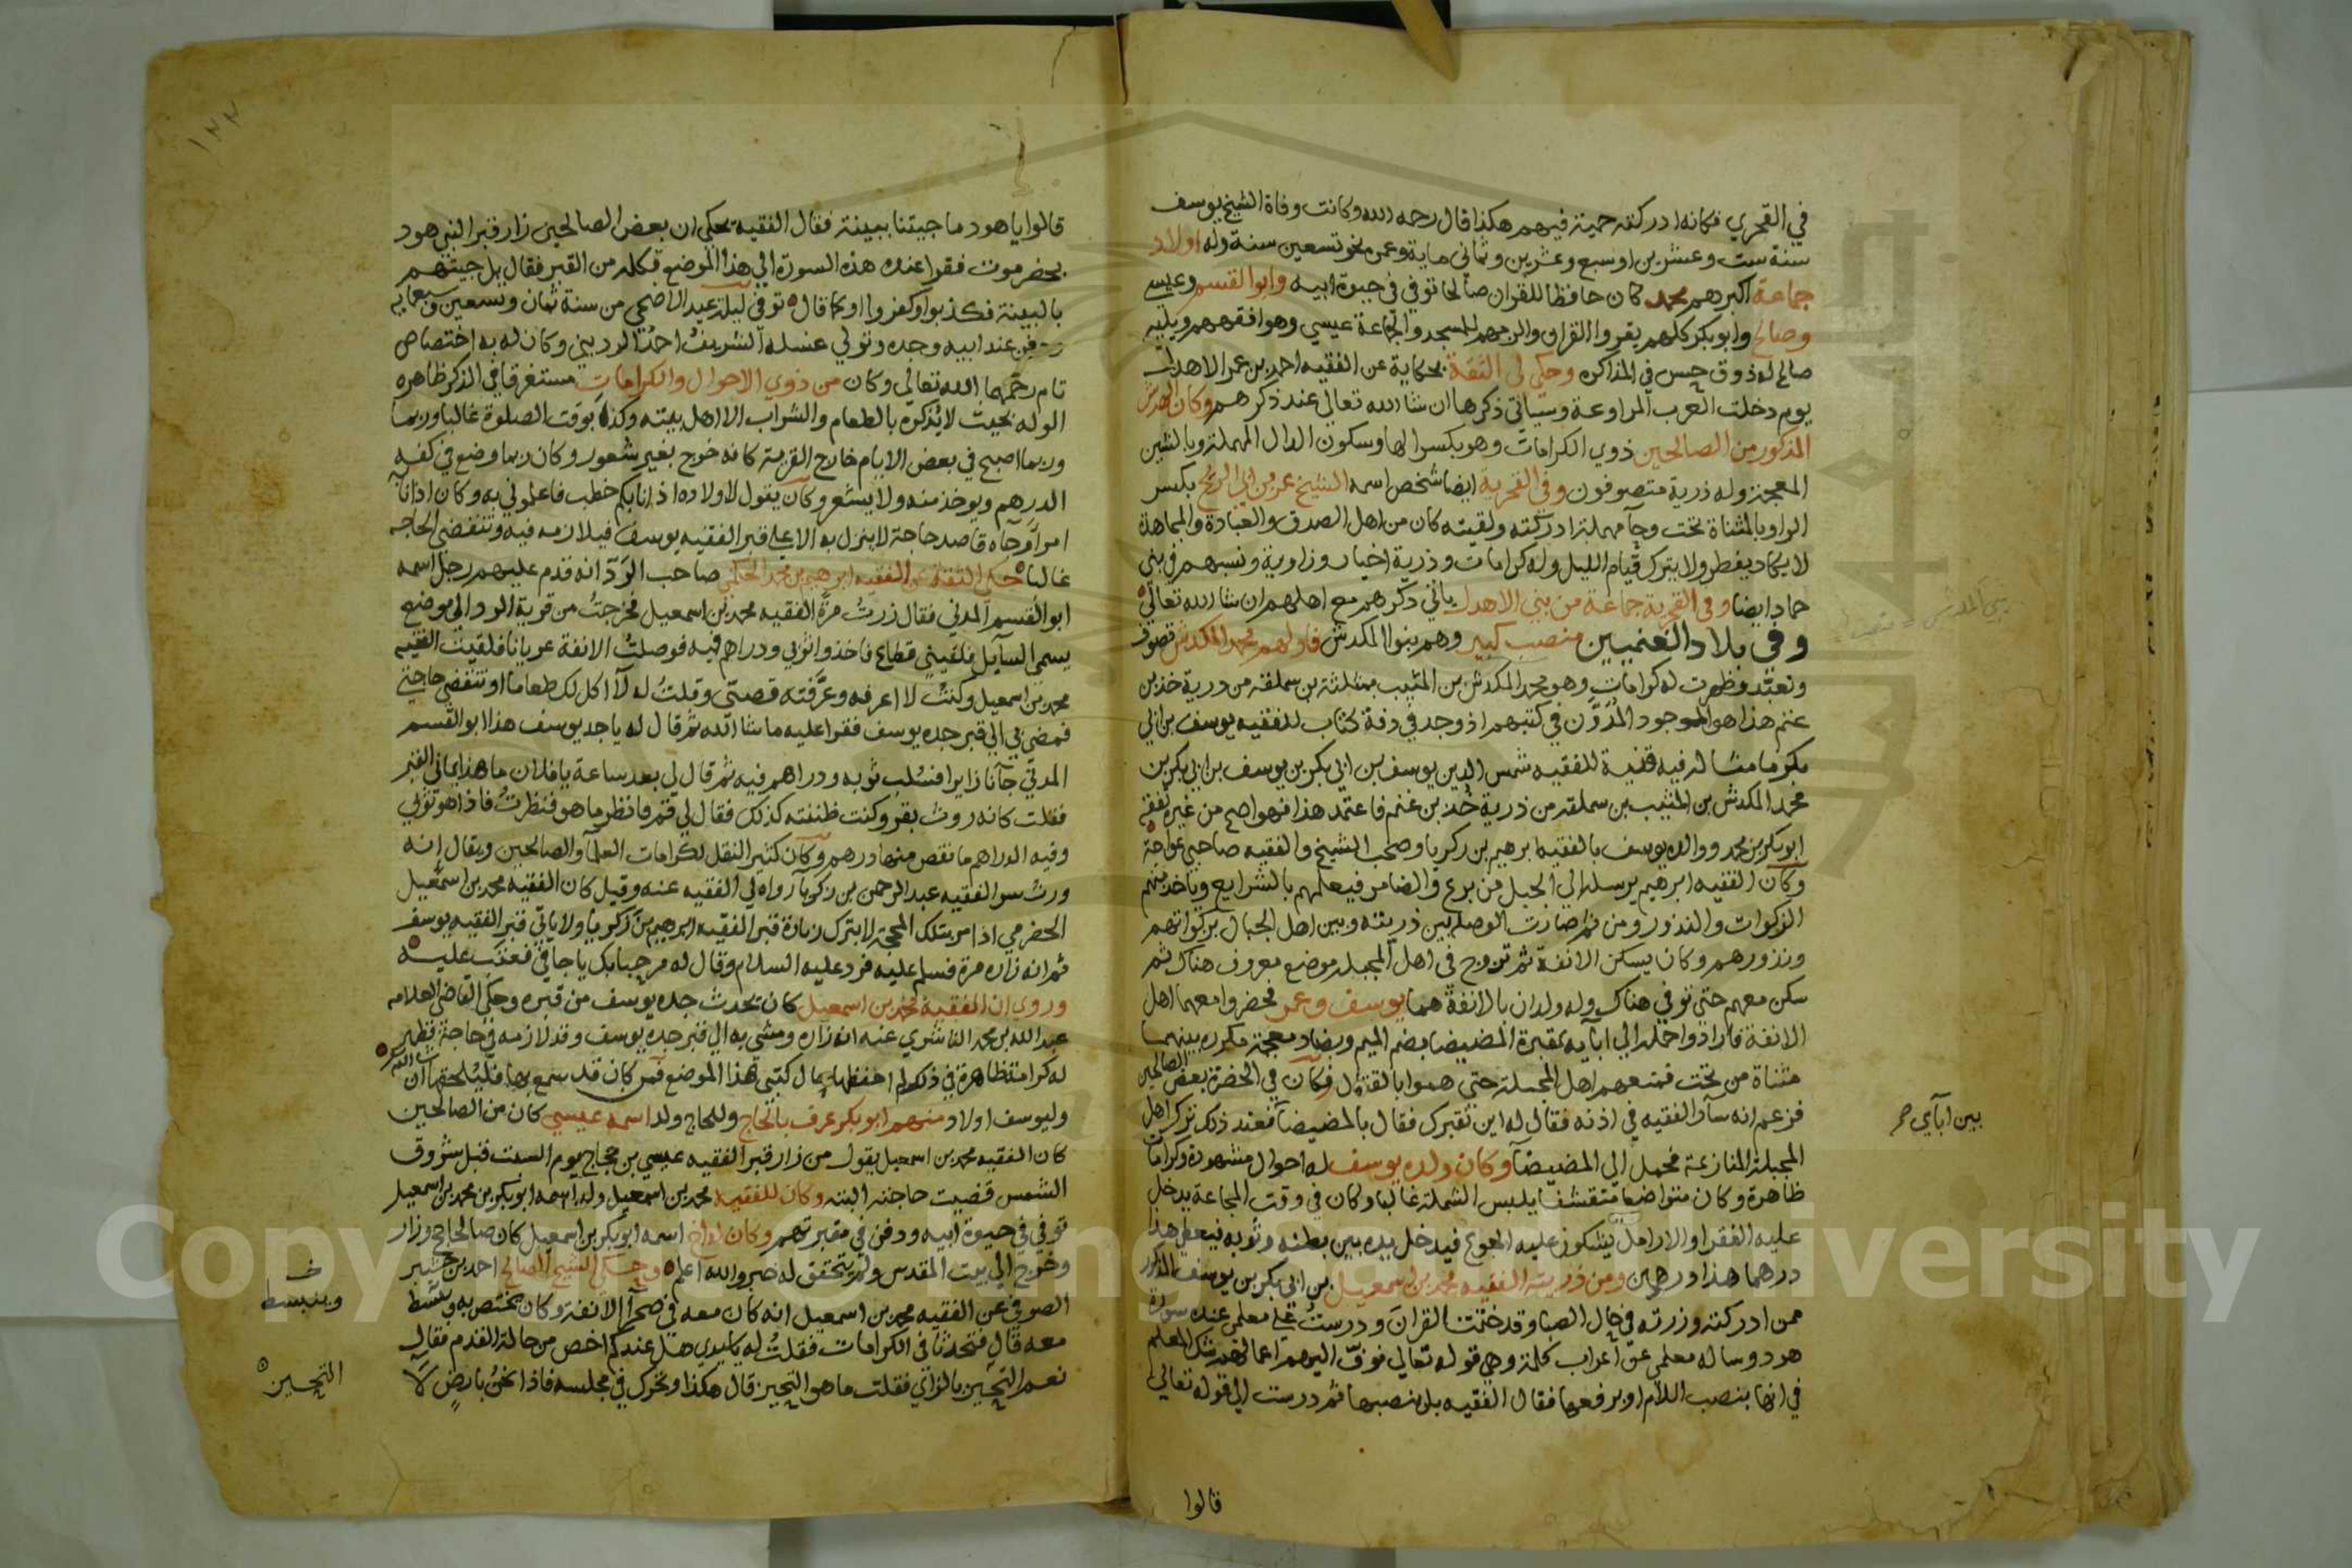 في القحري فكانه ادركته حمية فيهم هكذا قال رحمه الله وكانت وفاة الشيخ يوسف
سنة ست وعشرين او سبع وعشرين وثماني ماية وعمره نحو تسعين سنة وله اولاد
جماعة اكبرهم محمد كان حافظا للقران صالحا توفي في حيوة ابيه وابو القسم وعيسى
وصالح وابو بكر كلهم يقروا القران والزمهم للمسجد والجماعة عيسى وهو افقههم ويليه
صالح له ذوق حسن في المذاكره وحكى لي الثقة بحكاية عن الفقيه احمد بن عمر الاهدل
يوم دخلت العرب المراوعة وسياتي ذكرها ان شا الله تعالى عند ذكرهم وكان الهدش
المذكور من الصالحين ذوي الكرامات وهو بكسر الها وسكون الدال المهملة وبالشين
المعجمة وله ذرية متصوفون وفي القحرية ايضا شخص اسمه الشيخ عمر بن ابي الريح بكسر
الرا وبالمثناة تحت وحا مهملة ادركته ولقيته كان من اهل الصدق والعبادة والمجاهدة
لا يكاد يفطر ولا يترك قيام الليل وله كرامات وذرية اخيار وزاوية ونسبهم في بني
حماد ايضا وفي القحرية جماعة من بني الاهدل ياتي ذكرهم مع اهلهم ان شا الله تعالى
وفي بلاد الغنميين منصب كبير وهم بنوا المكدش فاولهم محمد المكدش تصوف
وتعبد وظهرت له كرامات وهو محمد المكدش بن المثيب بمثلثة بن سملقه من ذرية خد بن
غنم هذا هو الموجود المدون في كتبهم اذ وجد في دفة كتاب للفقيه يوسف بن ابي
بكر ما مثاله فيه قنية للفقيه شمس الدين يوسف بن ابي بكر بن يوسف بن ابي بكر بن
محمد المكدش بن المثيب بن سملقه من ذرية خد بن غنم فاعتمد هذا فهو اصح من غيره تفقه
ابو بكر بن محمد ووالده يوسف بالفقيه ابرهيم بن زكريا وصحب الشيخ والفقيه صاحبي عواجة
وكان الفقيه ابرهيم يرسله الى الجبل من برع والضامر فيعلمهم بالشرايع وياخذ منهم
الزكوات والنذور ومن ثم صارت الوصلة بين ذريته وبين اهل الجبال بزكواتهم
ونذورهم وكان يسكن الانفة ثم تزوج في اهل المجملة موضع معروف هناك ثم
سكن معهم حتى توفي هناك وله ولدان بالانفة هما يوسف وعمر فحضروا معهما اهل
الانفة فارادوا حمله الى ابايه بمقبرة المضيضا بضم الميم وبضاد معجمة مكررة بينهما
مثناة من تحت فمنعهم اهل المجملة حتى هموا بالقتال فكان في الحضرة بعض الصالحين
فزعم انه سار الفقيه في اذنه فقال له اين نقبرك فقال بالمضيضا فعند ذلك ترك اهل
المجملة المنازعة فحمل الى المضيضا وكان ولده يوسف له احوال مشهورة وكرامات
ظاهرة وكان متواضعا متقشفا يلبس الشملة غالبا وكان في وقت المجاعة يدخل
عليه الفقرا والارامل يشكون عليه الجوع فيدخل يده بين بطنه وثوبه فيعطي هذا
درهما هذا درهمين ومن ذريته الفقيه محمد بن اسمعيل بن ابي بكر بن يوسف المذكور
ممن ادركته وزرته في حال الصبا وقد ختمت القران ودرست على معلمي عنده سورة
هود وساله معلمي عن اعراب كلمة وهي قوله تعالى نوف اليهم اعمالهم شك المعلم
في انها بنصب اللام او برفعها فقال الفقيه بل بنصبها ثم درست الى قوله تعالى
قالوا
بين اباي صح
قالوا يا هود ما جيتنا ببينة فقال الفقيه يحكى ان بعض الصالحين زار قبر النبي هود
بحضرموت فقرا عنده هذه السورة الى هذا الموضع فكلمه من القبر فقال بل جيتهم
بالبينة فكذبوا وكفروا او كما قال توفي ليلة عيد الاضحى من سنة ثمان وتسعين وسبعماية
ودفن عند ابيه وجده وتولى غسله الشريف احمد الرديني وكان له به اختصاص
تام رحمهما الله تعالى وكان من ذوي الاحوال والكرامات مستغرقا في الذكر ظاهره
الوله بحيث لا يذكره بالطعام والشراب الا اهل بيته وكذا بوقت الصلوة غالبا وربما
وربما اصبح في بعض الايام خارج القرية كانه خرج بغير شعور وكان ربما وضع في كفه
الدرهم ويوخذ منه ولا يشعر وكان يقول لاولاده اذا نابكم خطب فاعلموني به وكان اذا نابه
امر او جاه قاصد حاجة لا ينزل به الا على قبر الفقيه يوسف فيلازمه فيه وتنقضي الحاجه
غالبا حكى الثقة عن الفقيه ابرهيم بن محمد الحكمي صاحب الرد انه قدم عليهم رجل اسمه
ابو القسم المدني فقال زرت مرة الفقيه محمد بن اسمعيل فخرجت من قرية الرد الى موضع
يسمى السايل فلقيني قطاع فاخذوا ثوبي ودراهم فيه فوصلت الانفة عريانا فلقيت الفقيه
محمد بن اسمعيل وكنت لا اعرفه وعرفته قصتي وقلت له لا اكل لك طعاما او تنقضي حاجتي
فمضى بي الى قبر جده يوسف فقرا عليه ما شا الله ثم قال له يا جد يوسف هذا ابو القسم
المدني جانا زايرا فسلب ثوبه ودراهم فيه ثم قال لي بعد ساعة يا فلان ما هذا بجانب القبر
فقلت كانه روث بقر وكنت ظننته كذلك فقال لي قم فانظر ما هو فنظرت فاذا هو ثوبي
وفيه الدراهم ما نقص منها درهم وكان كثير النقل لكرامات العلما والصالحين ويقال انه
ورث سر الفقيه عبد الرحمن بن زكريا رواه لي الفقيه عنه وقيل كان الفقيه محمد بن اسمعيل
الحضرمي اذا مر بتلك المحجة لا يترك زيارة قبر الفقيه ابرهيم بن زكريا ولا ياتي قبر الفقيه يوسف
ثم انه زاره مرة فسلم عليه فرد عليه السلام وقال له مرحبا بك يا جافي فعتب عليه
وروي ان الفقيه محمد بن اسمعيل كان يحدث جده يوسف من قبره وحكى القاضي العلامه
عبد الله بن محمد الناشري عنه انه زاره ومشى به الى قبر جده يوسف وقد لازمه في حاجة فظهر
له كرامة ظاهرة في ذلك لم احفظها حال كتبي هذا الموضع فمن كان قد سمع بها فليلحقها ان شا الله
وليوسف اولاد منهم ابو بكر عرف بالحاج وللحاج ولد اسمه عيسى كان من الصالحين
كان الفقيه محمد بن اسمعيل يقول من زار قبر الفقيه عيسى بن حجاج يوم السبت قبل شروق
الشمس قضيت حاجته البته وكان للفقيه محمد بن اسمعيل ولد اسمه ابو بكر بن محمد بن اسمعيل
توفي في حيوة ابيه ودفن في مقبرتهم وكان له اخ اسمه ابو بكر بن اسمعيل كان صالحا حج وزار
وخرج الى بيت المقدس ولم يتحقق له خبر والله اعلم وحكى الشيخ الصالح احمد بن
الصوفي عن الفقيه محمد بن اسمعيل انه كان معه في صحرا الانفة وكان يختص به وينبسط
معه قال فتحدثنا في الكرامات فقلت له يا سيدي هل عندكم اخص من حالة القدم فقال
نعم التحيز بالزاي فقلت ما هو التحيز قال هكذا وتحرك في مجلسه فاذا نحن بارض لا
وينبسط